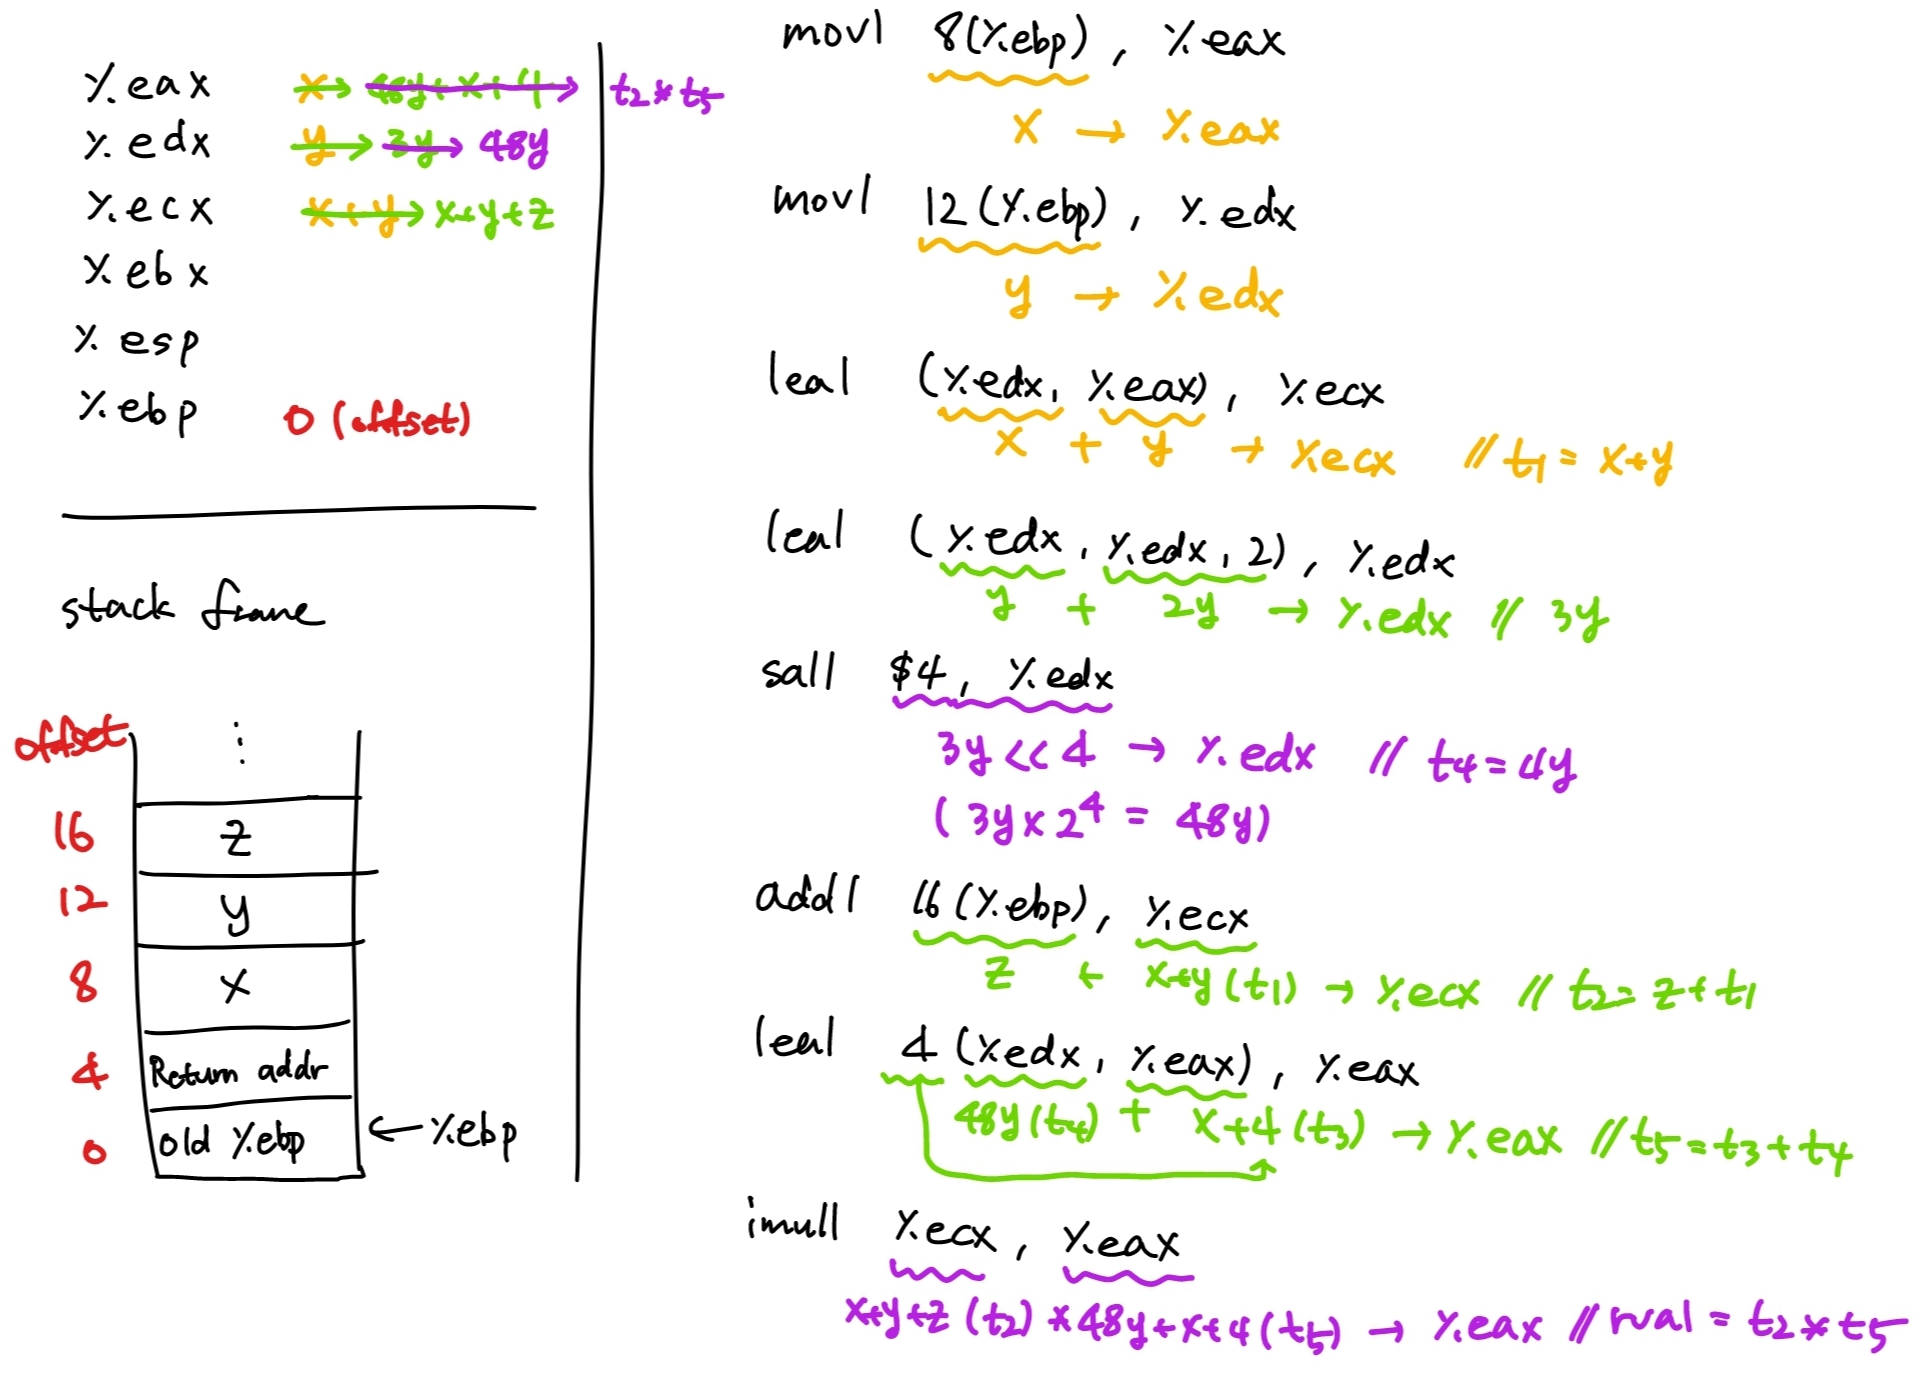 %eax x → 48y+x+4 → t2*t5
%edx y → 3y → 48y
%ecx x+y → x+y+z
%ebx
%esp
%ebp 0 (offset)
stack frame
offset ⋮
16 z
12 y
8 x
4 Return addr
0 old %ebp ← %ebp
movl 8(%ebp), %eax
x → %eax
movl 12(%ebp), %edx
y → %edx
leal (%edx, %eax), %ecx
x + y → %ecx // t1 = x+y
leal (%edx, %edx, 2), %edx
y + 2y → %edx // 3y
sall $4, %edx
3y << 4 → %edx // t4 = 4y
(3y x 2^4 = 48y)
addl 16(%ebp), %ecx
z + x+y (t1) → %ecx // t2 = z+t1
leal 4 (%edx, %eax), %eax
48y (t4) + x+4 (t3) → %eax // t5 = t3+t4
imull %ecx, %eax
x+y+z (t2) * 48y+x+4 (t5) → %eax // rval = t2*t5